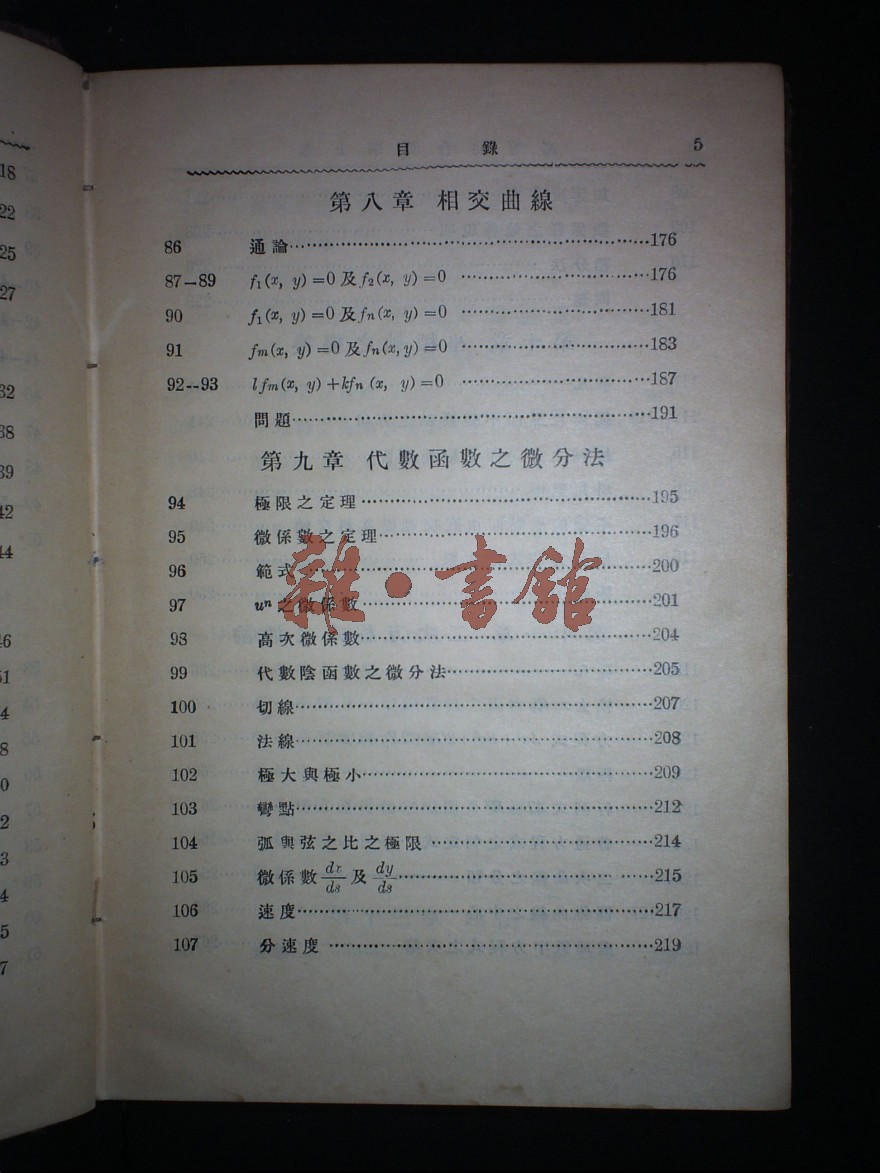 目錄 5
第八章 相交曲線
86 通論 176
87—89 f₁(x, y)=0 及 f₂(x, y)=0 176
90 f₁(x, y)=0 及 fn(x, y)=0 181
91 fm(x, y)=0 及 fn(x, y)=0 183
92--93 lfm(x, y)+kfn(x, y)=0 187
問題 191
第九章 代數函數之微分法
94 極限之定理 195
95 微係數之定理 196
96 範式 200
雜·書館
97 uⁿ之微係數 201
98 高次微係數 204
99 代數陰函數之微分法 205
100 切線 207
101 法線 208
102 極大與極小 209
103 彎點 212
104 弧與弦之比之極限 214
105 微係數 dx/ds 及 dy/ds 215
106 速度 217
107 分速度 219